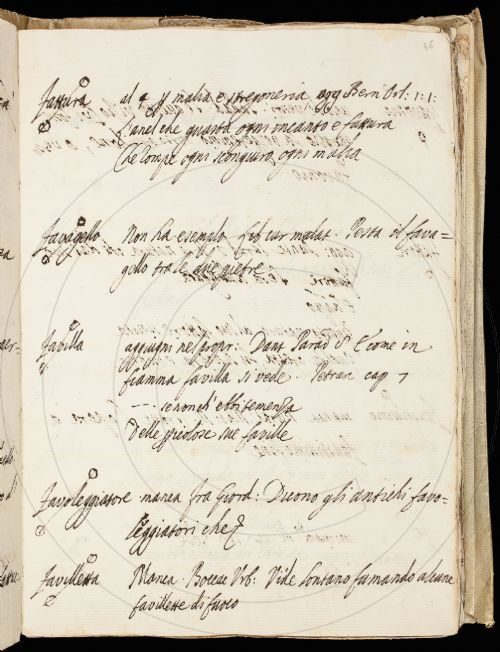 36
fattura al 4 § malia e stregoneria agg Bern Orl: 1: 1:
L'anel che guasta ogni incanto e fattura
Che rompe ogni scongiuro, ogni malia
favagello Non ha esempio. lib cur malat. Pesta il fava=
gello tra le due pietre
favilla aggiugni nel propr: Dant Parad 8 E come in
fiamma favilla si vede. Petrar cap 7
--- se non ch'ebbi temenza
Delle pericolose sue faville
favoleggiatore manca fra Giord: Dicono gli antichi favo=
leggiatori che
favilletta Manca. Bocca Urb: Vide lontano fumando alcune
favillette di fuoco